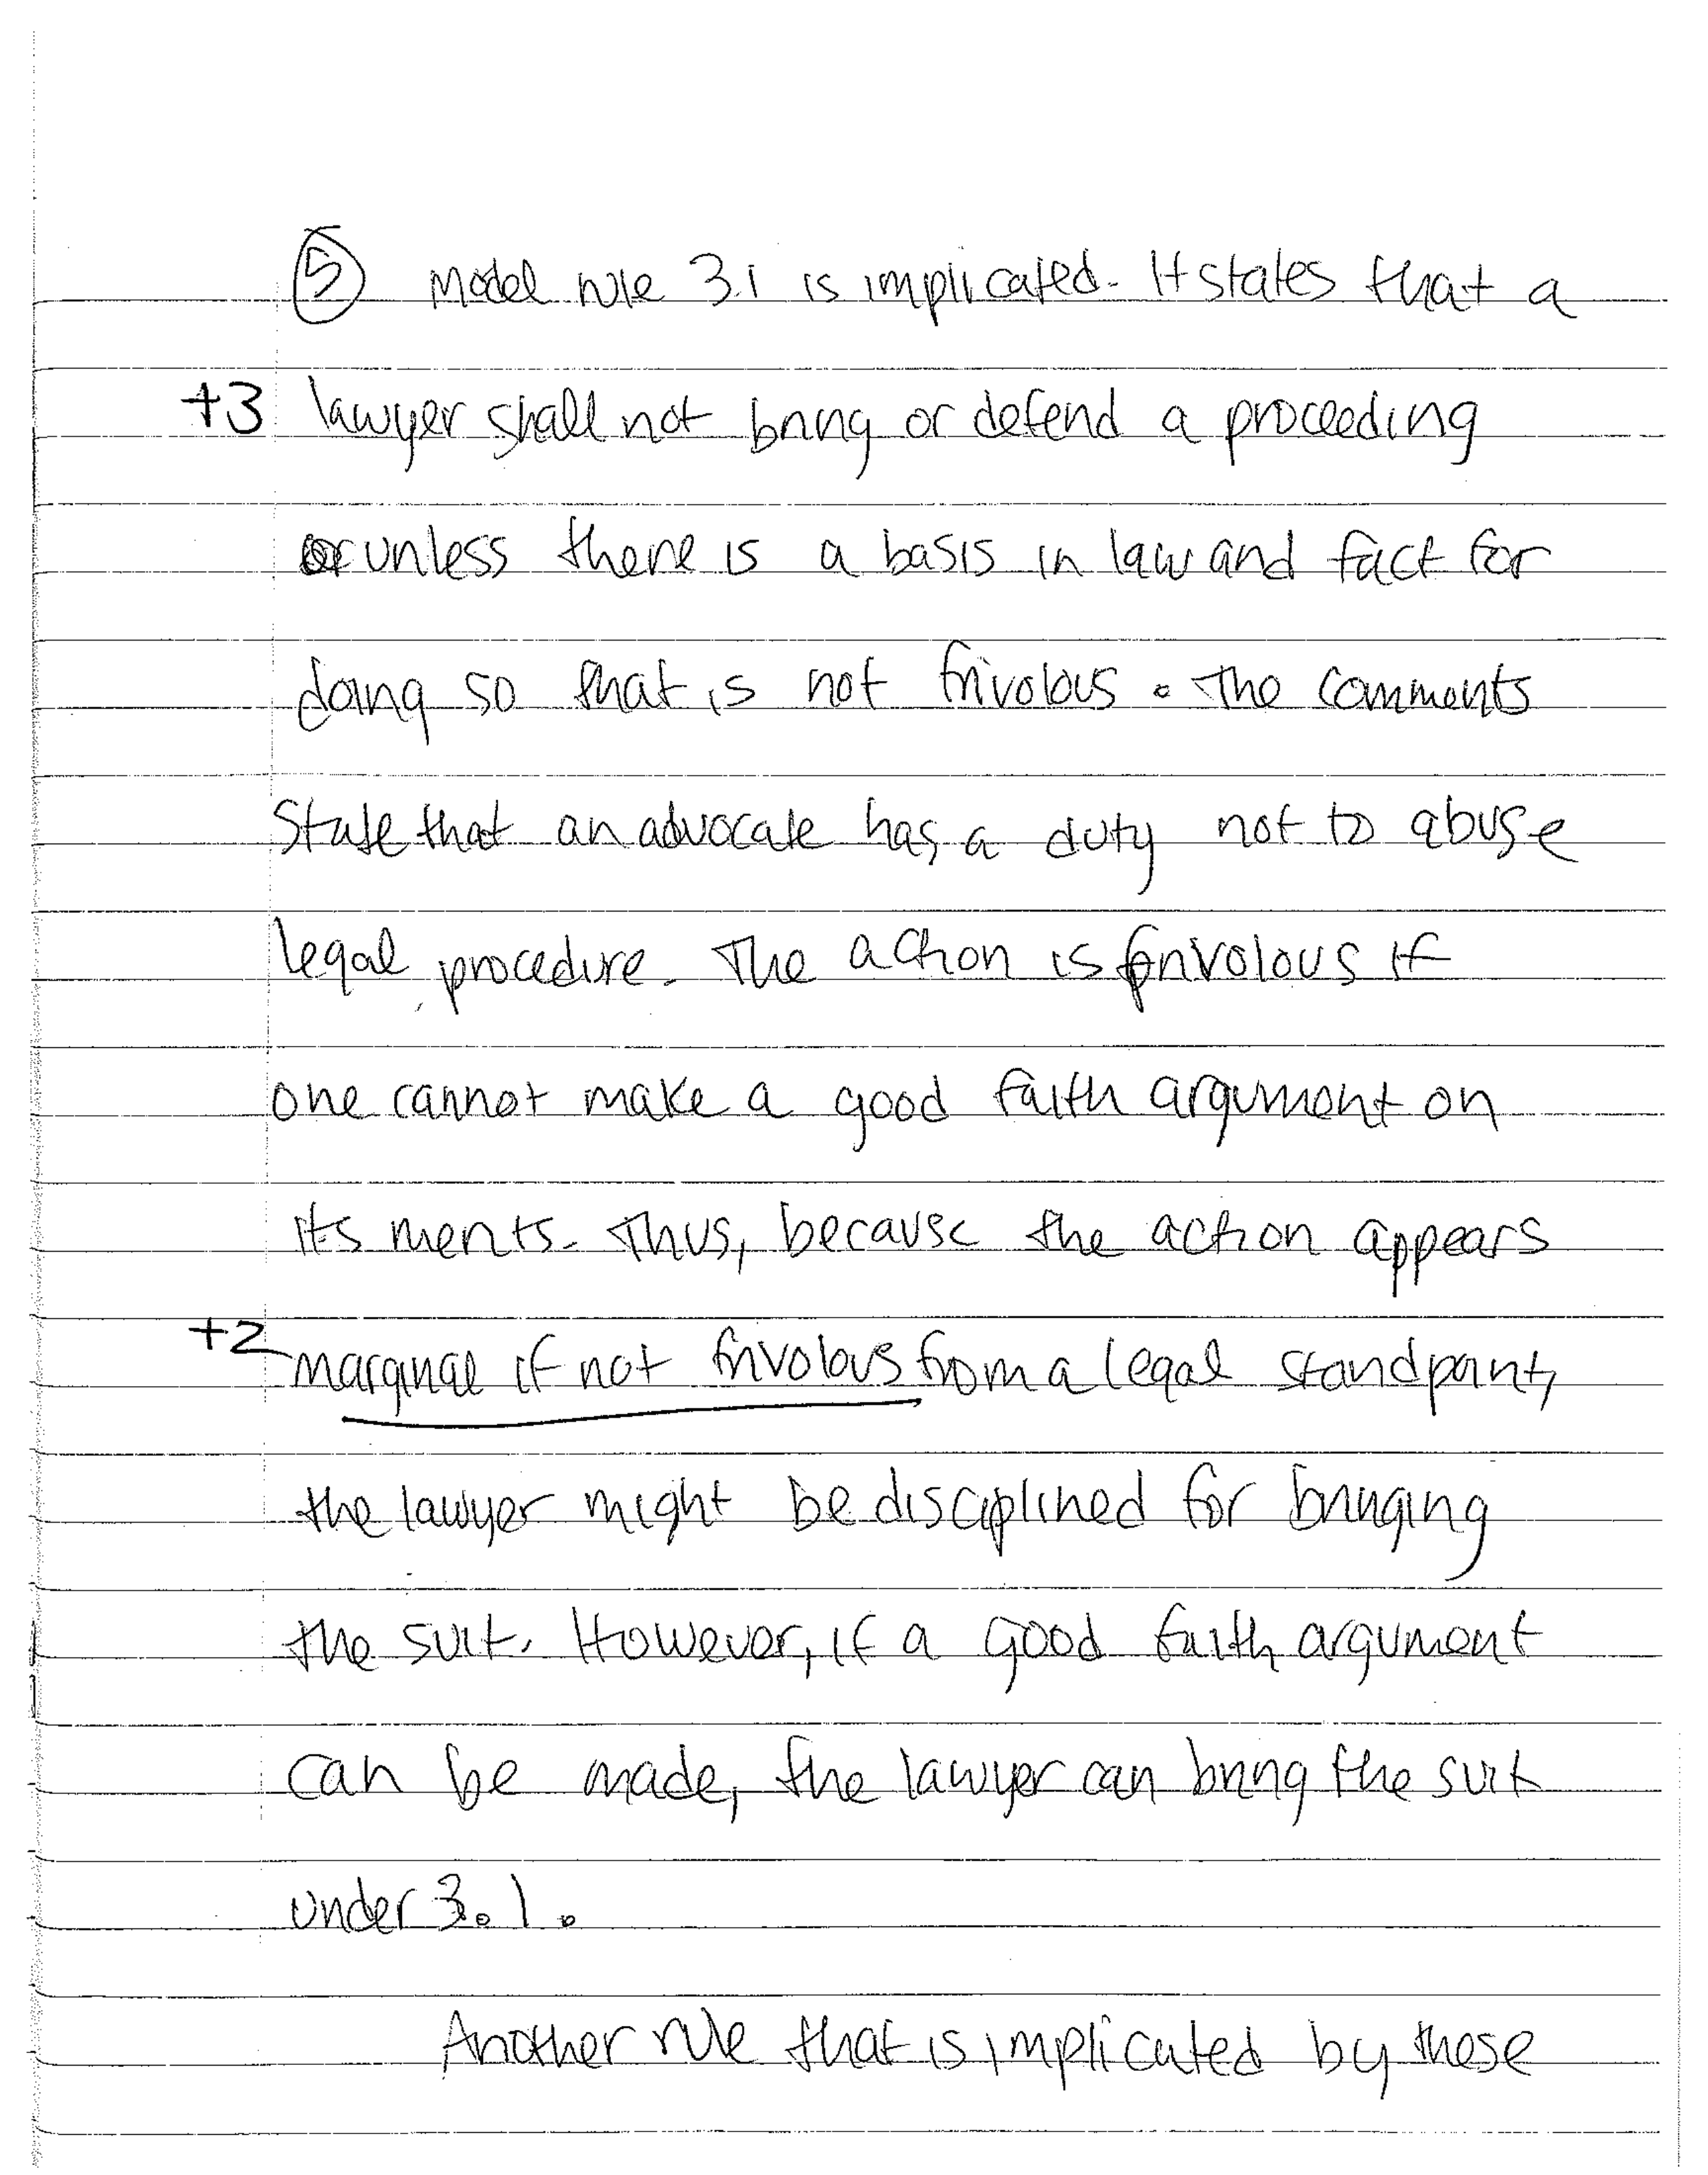 ⑤ Model rule 3.1 is implicated. It states that a
+3 lawyer shall not bring or defend a proceeding
unless there is a basis in law and fact for
doing so that is not frivolous. The comments
State that an advocate has a duty not to abuse
legal procedure. The action is frivolous if
one cannot make a good faith argument on
its merits. Thus, because the action appears
+2 marginal if not frivolous from a legal standpoint,
the lawyer might be disciplined for bringing
the suit. However, if a good faith argument
can be made, the lawyer can bring the suit
under 3.1.
Another rule that is implicated by these